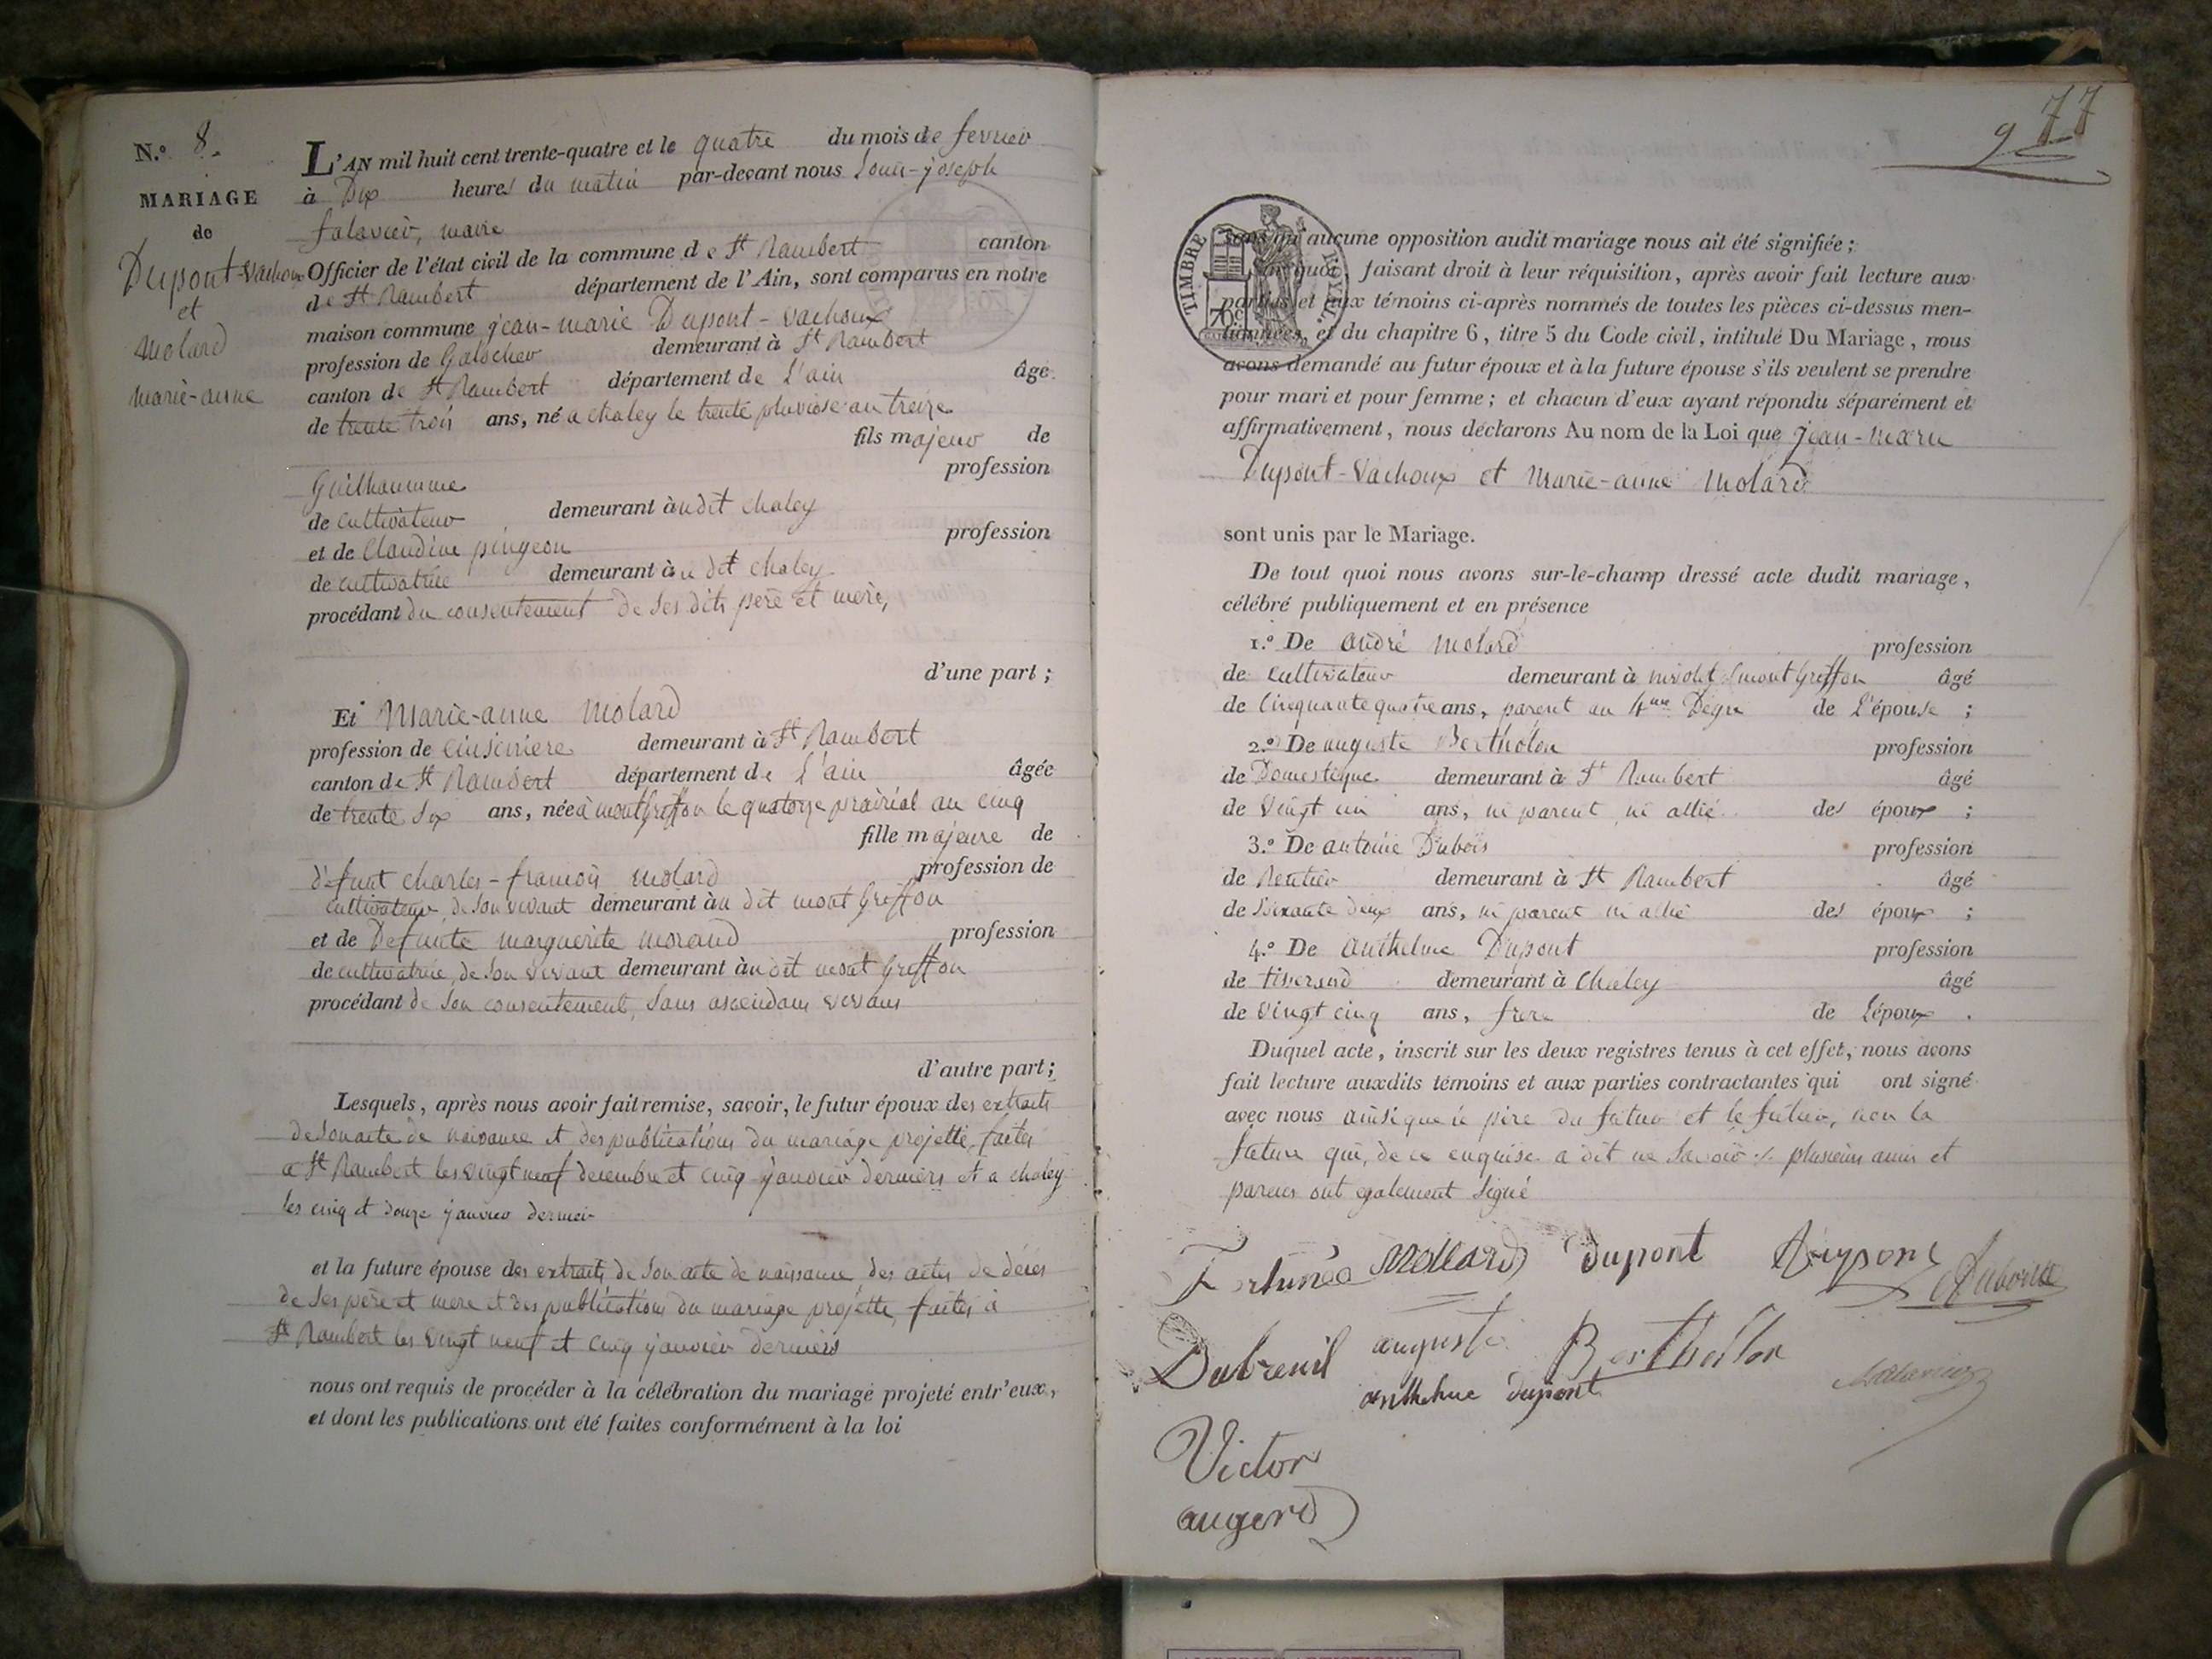 N.º 8.
MARIAGE
de
Dupont-Vachoux
et
Molard
marie-anne
L'AN mil huit cent trente-quatre et le quatre du mois de fevrier
à Dix heures du matin par-devant nous Louis-joseph
falavier, maire
Officier de l'état civil de la commune de St Rambert canton
de St Rambert département de l'Ain, sont comparus en notre
maison commune jean-marie Dupont-Vachoux
profession de Galocher demeurant à St Rambert
canton de St Rambert département de L'ain âgé
de trente trois ans, né a chaley le trente pluviose an treize
fils majeur de
profession
Guilhaumme
de cultivateur demeurant àudit chaley
et de Claudine pingeon profession
de cultivatrice demeurant àu dit chaley
procédant du consentement de ses dits pere et mere,
d'une part ;
Et Marie-anne Molard
profession de cuisiniere demeurant à St Rambert
canton de St Rambert département de L'ain âgée
de trente six ans, née à montGriffon le quatorze prairéal an cinq
fille majeure de
défunt charles-francois molard profession de
cultivateur de son vivant demeurant àu dit mont Griffon
et de Defunte marguerite morand profession
de cultivatrice, de son vivant demeurant àudit mont Griffon
procédant de son consentement, sans ascendans vivans
d'autre part;
Lesquels, après nous avoir fait remise, savoir, le futur époux des extraits
de son acte de naissance et des publications du mariage projetté, faites
a St Rambert les vingt neuf decembre et cinq janvier derniers et a chaley
les cinq et douze janvier dernier
et la future épouse des extraits de son acte de naissance, des actes de déces
de ses pere et mere et des publications du mariage projetté, faites à
St Rambert les vingt neuf et cinq janvier derniers
nous ont requis de procéder à la célébration du mariage projeté entr'eux,
et dont les publications ont été faites conformément à la loi
9 77
TIMBRE ROYAL
70c
sans qu'aucune opposition audit mariage nous ait été signifiée ;
quoi, faisant droit à leur réquisition, après avoir fait lecture aux
parties et aux témoins ci-après nommés de toutes les pièces ci-dessus men-
tionnées, et du chapitre 6, titre 5 du Code civil, intitulé Du Mariage, nous
avons demandé au futur époux et à la future épouse s'ils veulent se prendre
pour mari et pour femme ; et chacun d'eux ayant répondu séparément et
affirmativement, nous déclarons Au nom de la Loi que jean-marie
Dupont-Vachoux et Marie-anne Molard
sont unis par le Mariage.
De tout quoi nous avons sur-le-champ dressé acte dudit mariage,
célébré publiquement et en présence
1.º De André Molard profession
de cultivateur demeurant à montGriffon âgé
de Cinquante quatre ans, parent au 4me Degre de L'épouse ;
2.º De auguste Bertholon profession
de Domestique demeurant à St Rambert âgé
de Vingt un ans, ni parent ni allié des époux ;
3.º De antoine Dubois profession
de Rentier demeurant à St Rambert âgé
de Soixante deux ans, ni parent ni allié des époux ;
4.º De Anthelme Dupont profession
de tisserand demeurant à Chaley âgé
de Vingt cinq ans, frere de L'époux .
Duquel acte, inscrit sur les deux registres tenus à cet effet, nous avons
fait lecture auxdits témoins et aux parties contractantes qui ont signé
avec nous ainsi que le père du futur et le futur, non la
future qui, de ce enquise a dit ne savoir ./. plusieurs amis et
parens ont egalement Signé
Mollard dupont
Dubreuil auguste Berthollon
anthelme dupont
Victor
augerd